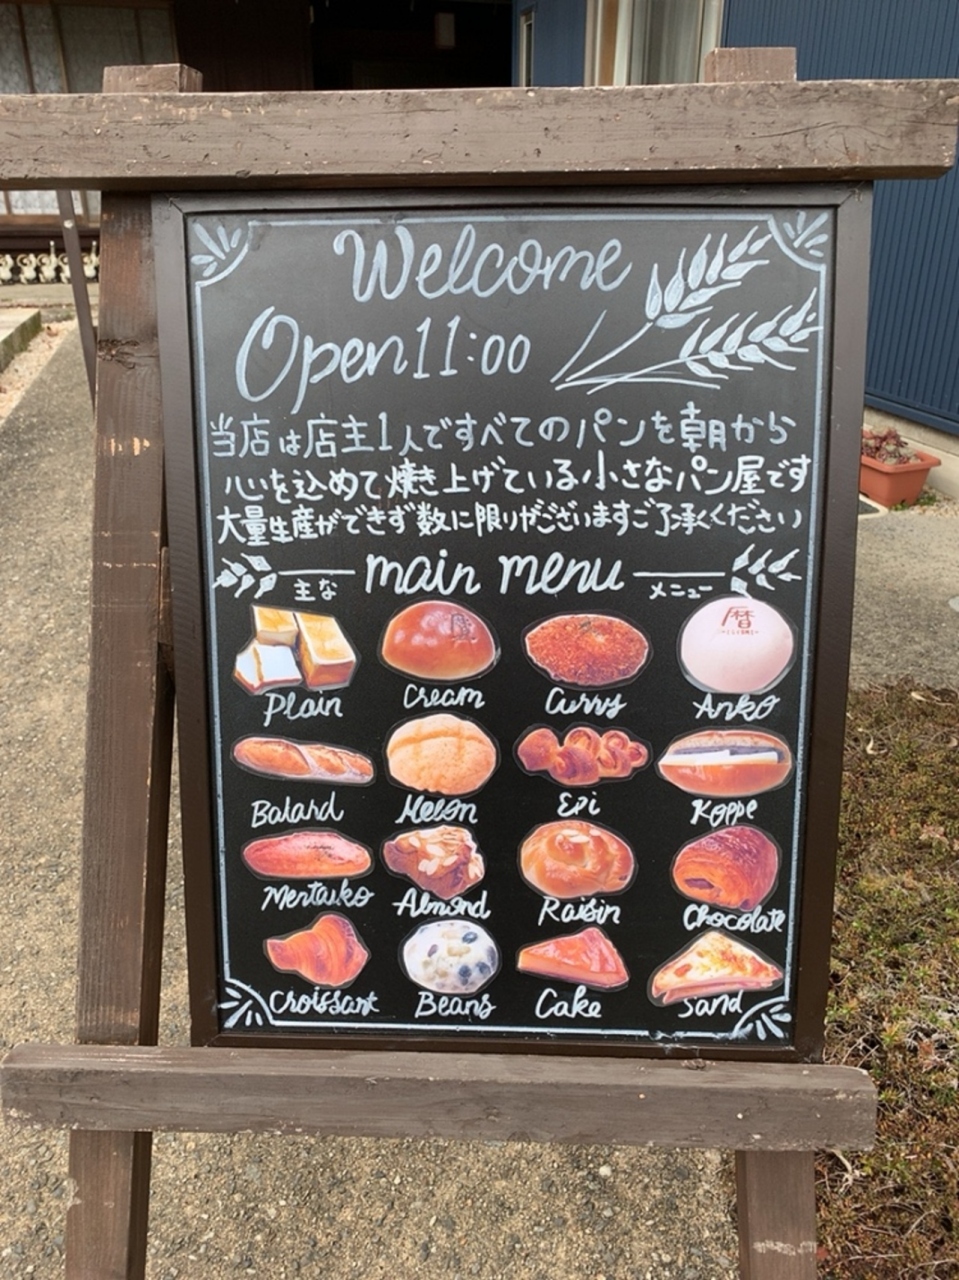 Welcome
Open 11:00
当店は店主1人ですべてのパンを朝から
心を込めて焼き上げている小さなパン屋です
大量生産ができず数に限りがございますご了承ください
主な main menu メニュー
暦 暦
Plain Cream Curry Anko
Batard Melon Epi Koppe
Mentaiko Almond Raisin Chocolate
Croissant Beans Cake Sand